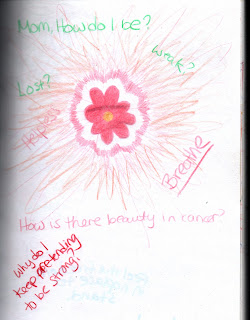 Mom, How do I be?
weak?
Lost?
Helpless
Breathe
How is there beauty in cancer?
Why do I
keep pretending
to be strong?